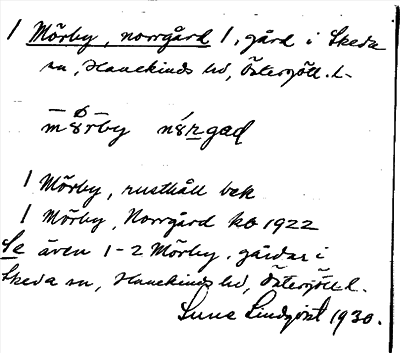 1 Mörby, norrgård 1, gård i Skeda
sn, Hanekinds hd, Östergötl. l.
mörby nørgaḍ
1 Mörby, rusthåll bek
1 Mörby, Norrgård ko 1922
Se även 1-2 Mörby, gårdar i
Skeda sn, Hanekinds hd, Östergötl. l.
Sune Lindqvist 1930.